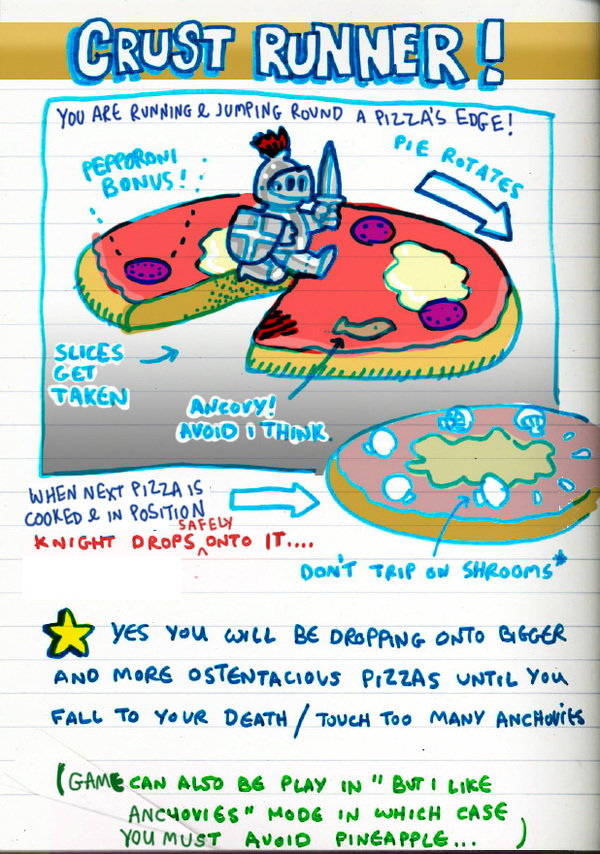 CRUST RUNNER!
YOU ARE RUNNING & JUMPING ROUND A PIZZA'S EDGE!
PEPPORONI
BONUS!
PIE ROTATES
SLICES
GET
TAKEN
ANCOVY!
AVOID I THINK.
WHEN NEXT PIZZA IS
COOKED & IN POSITION
SAFELY
KNIGHT DROPS ONTO IT....
DON'T TRIP ON SHROOMS*
YES YOU WILL BE DROPPING ONTO BIGGER
AND MORE OSTENTACIOUS PIZZAS UNTIL YOU
FALL TO YOUR DEATH / TOUCH TOO MANY ANCHOVIES
(GAME CAN ALSO BE PLAY IN "BUT I LIKE
ANCHOVIES" MODE IN WHICH CASE
YOU MUST AVOID PINEAPPLE... )